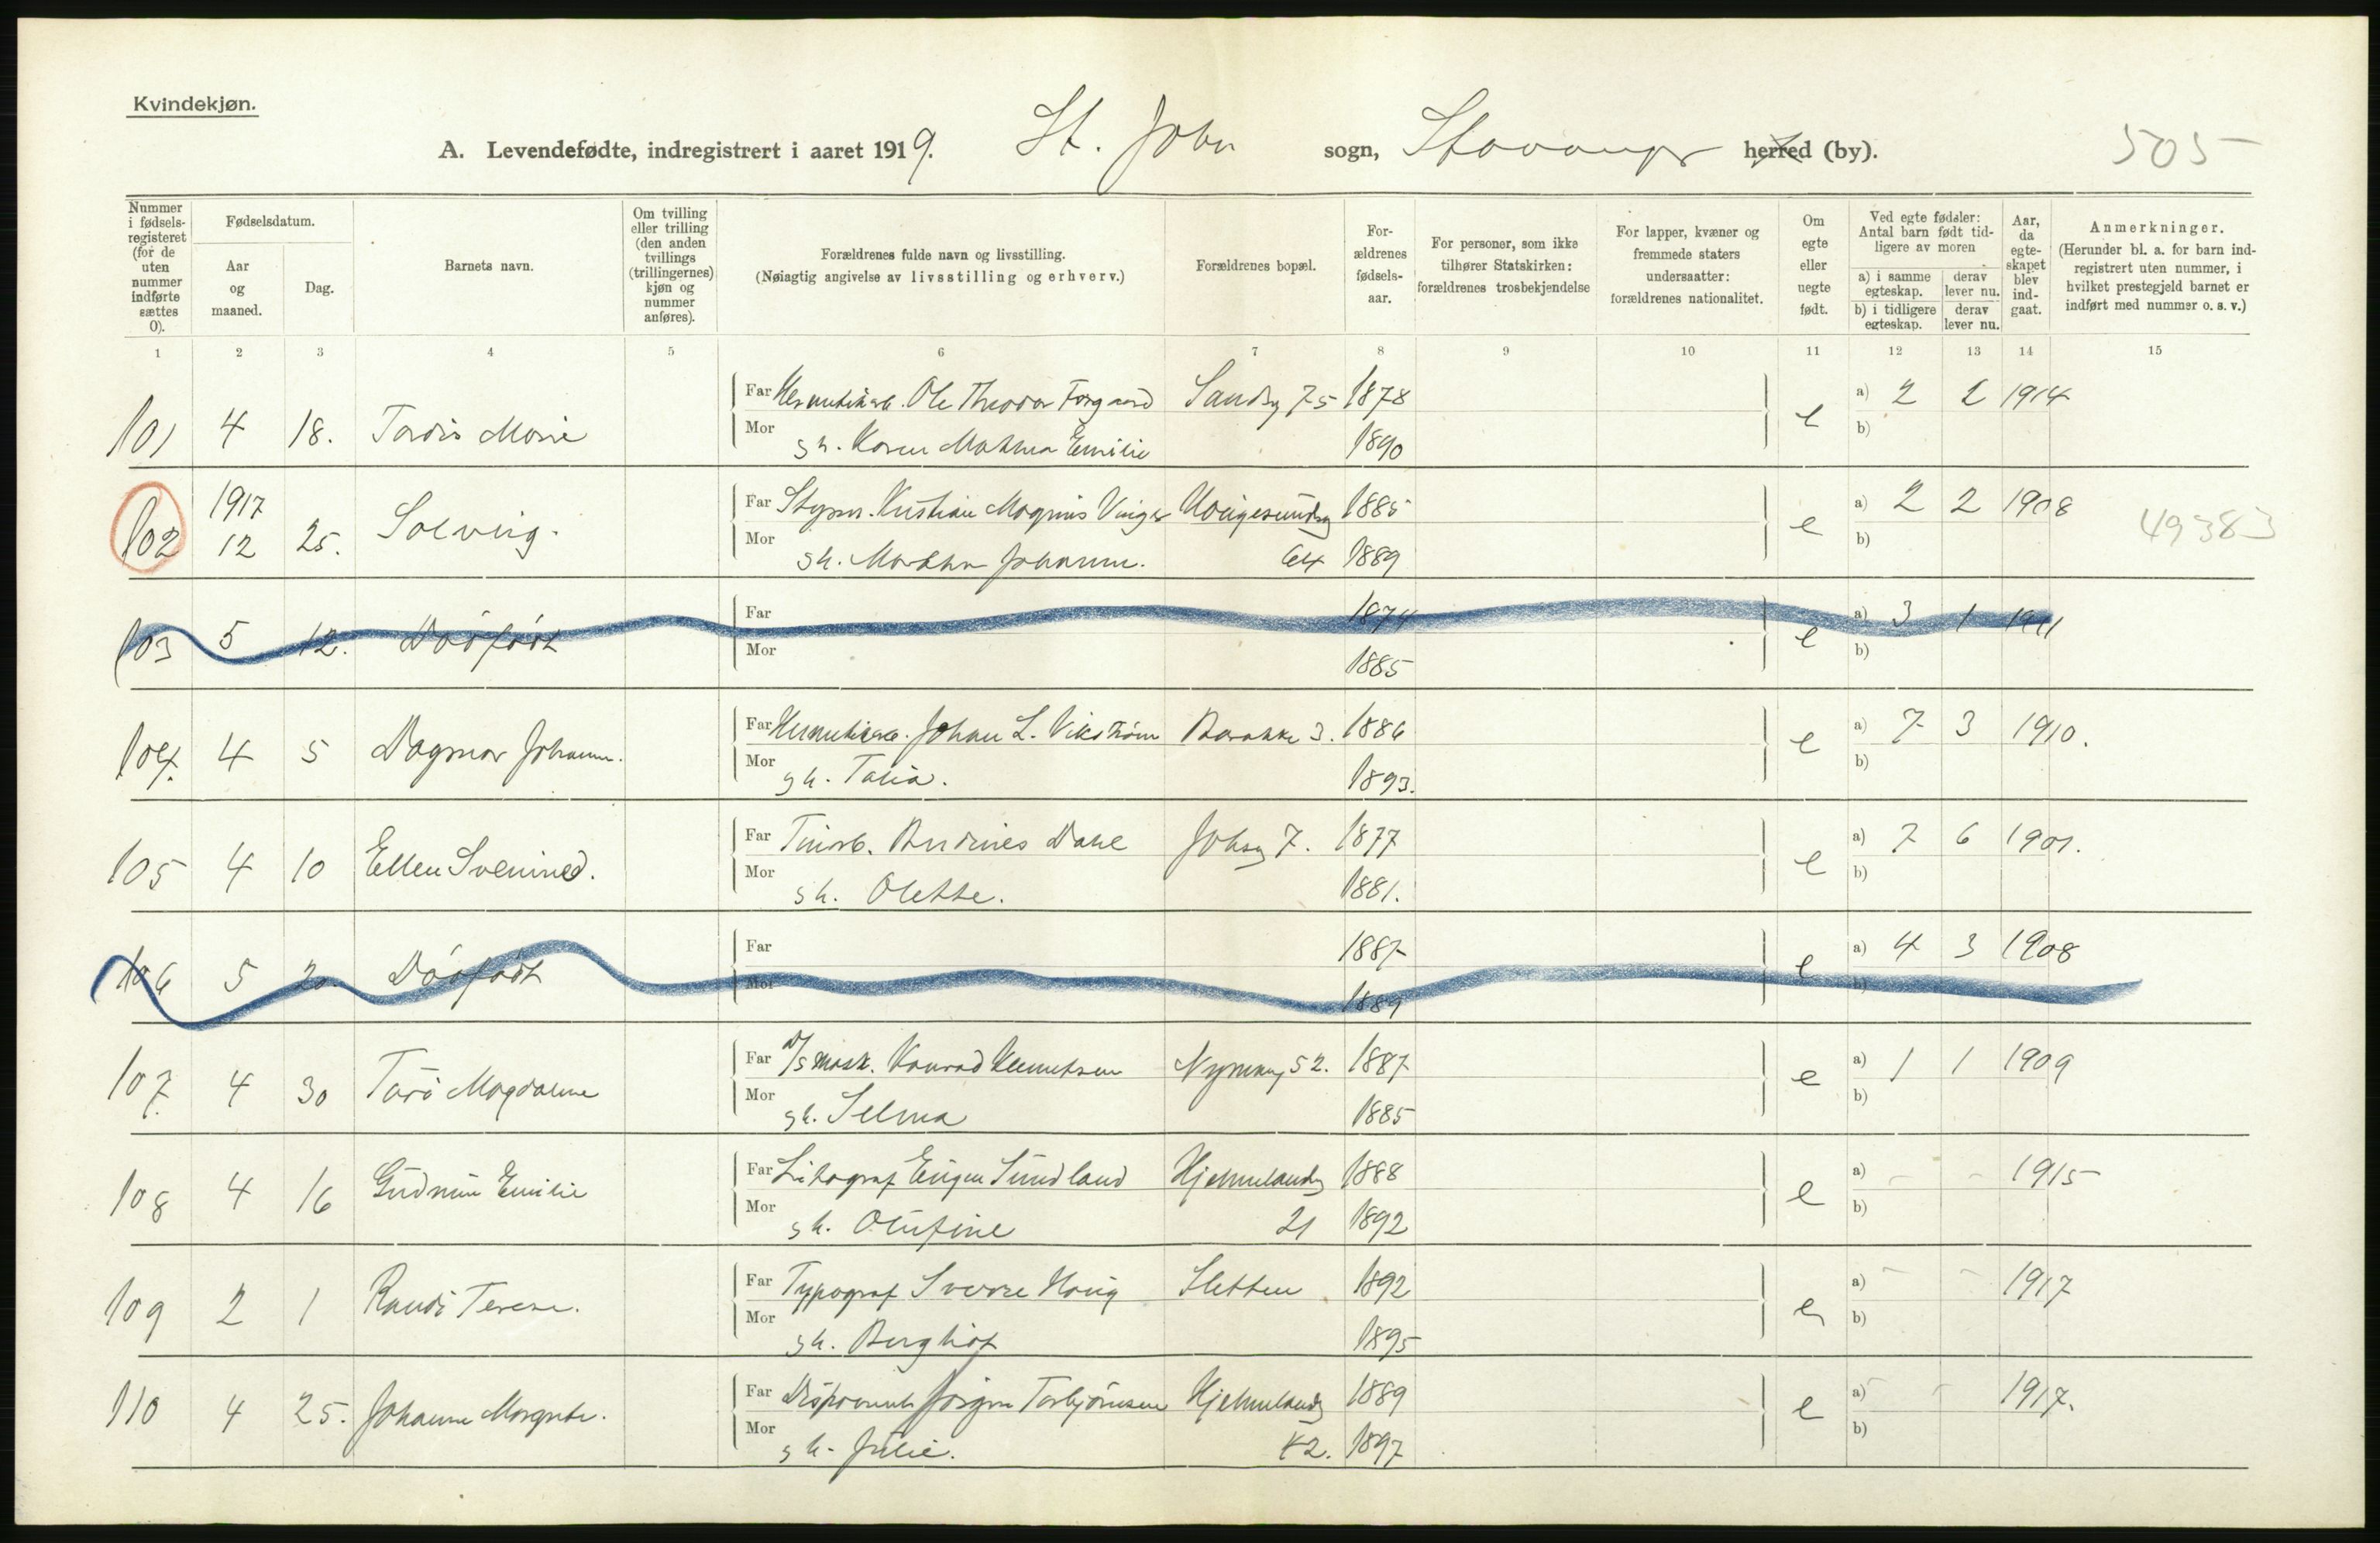 Kvindekjøn.
A. Levendefødte, indregistrert i aaret 1919. St. Joh sogn, Stavanger herred (by). 505
Nummer i fødselsregisteret (for de uten nummer indførte sættes 0).
Fødselsdatum.
Aar og maaned.
Dag.
Barnets navn.
Om tvilling eller trilling (den anden tvillings (trillingernes) kjøn og nummer anføres).
Forældrenes fulde navn og livsstilling.
(Nøiagtig angivelse av livsstilling og erhverv.)
Forældrenes bopæl.
Forældrenes fødselsaar.
For personer, som ikke tilhører Statskirken: forældrenes trosbekjendelse
For lapper, kvæner og fremmede staters undersaatter: forældrenes nationalitet.
Om egte eller uegte født.
Ved egte fødsler: Antal barn født tidligere av moren
a) i samme egteskap. derav lever nu.
b) i tidligere egteskap. derav lever nu.
Aar, da egteskapet blev indgaat.
Anmerkninger.
(Herunder bl. a. for barn indregistrert uten nummer, i hvilket prestegjeld barnet er indført med nummer o. s. v.)
1 2 3 4 5 6 7 8 9 10 11 12 13 14 15
Far Ole Theodor Sandsg 75 1878 a) 2 2 1914
101 4 18. Tordis Marie e
Mor sh. Karen Mathea Emilie 1890 b)
1917 Far Styrm. Kristian Magnus Haugesundsg 1885 a) 2 2 1908
102 12 25. Solveig. e 49383
Mor sh. Martha Johanne. 64 1889 b)
Far 1874 a) 3 1 1911
103 5 12. Dødfødt e
Mor 1885 b)
Far Johan L. Vikstrøm Barakke 3. 1886 a) 7 3 1910.
104. 4 5 Dagmar Johanne. e
Mor sh. Talia. 1893. b)
Far Andreas Dahl Johsg 7. 1877 a) 7 6 1901.
105 4 10 Ellen e
Mor sh. Olette. 1881. b)
Far 1887 a) 4 3 1908
106 5 20. Dødfødt e
Mor 1889 b)
Far D/S mask. Konrad Clementsen 52. 1887 a) 1 1 1909
107. 4 30 Magdalene e
Mor sh. Selma 1885 b)
Far Litograf Eugen Sundland Hjelmelandsg 1888 a) - - 1915
108 4 16 Gudrun Emilie e
Mor sh. Olufine 21 1892 b)
Far Typograf Sverre Haug Sletten 1892 a) - - 1917
109 2 1 Randi Terese. e
Mor sh. Bergliot 1895 b)
Far Disponent Jørgen Torbjørnsen Hjelmelandsg 1889 a) - - 1917.
110 4 25. Johanne Margrete. e
Mor sh. Julie. 42. 1897 b)